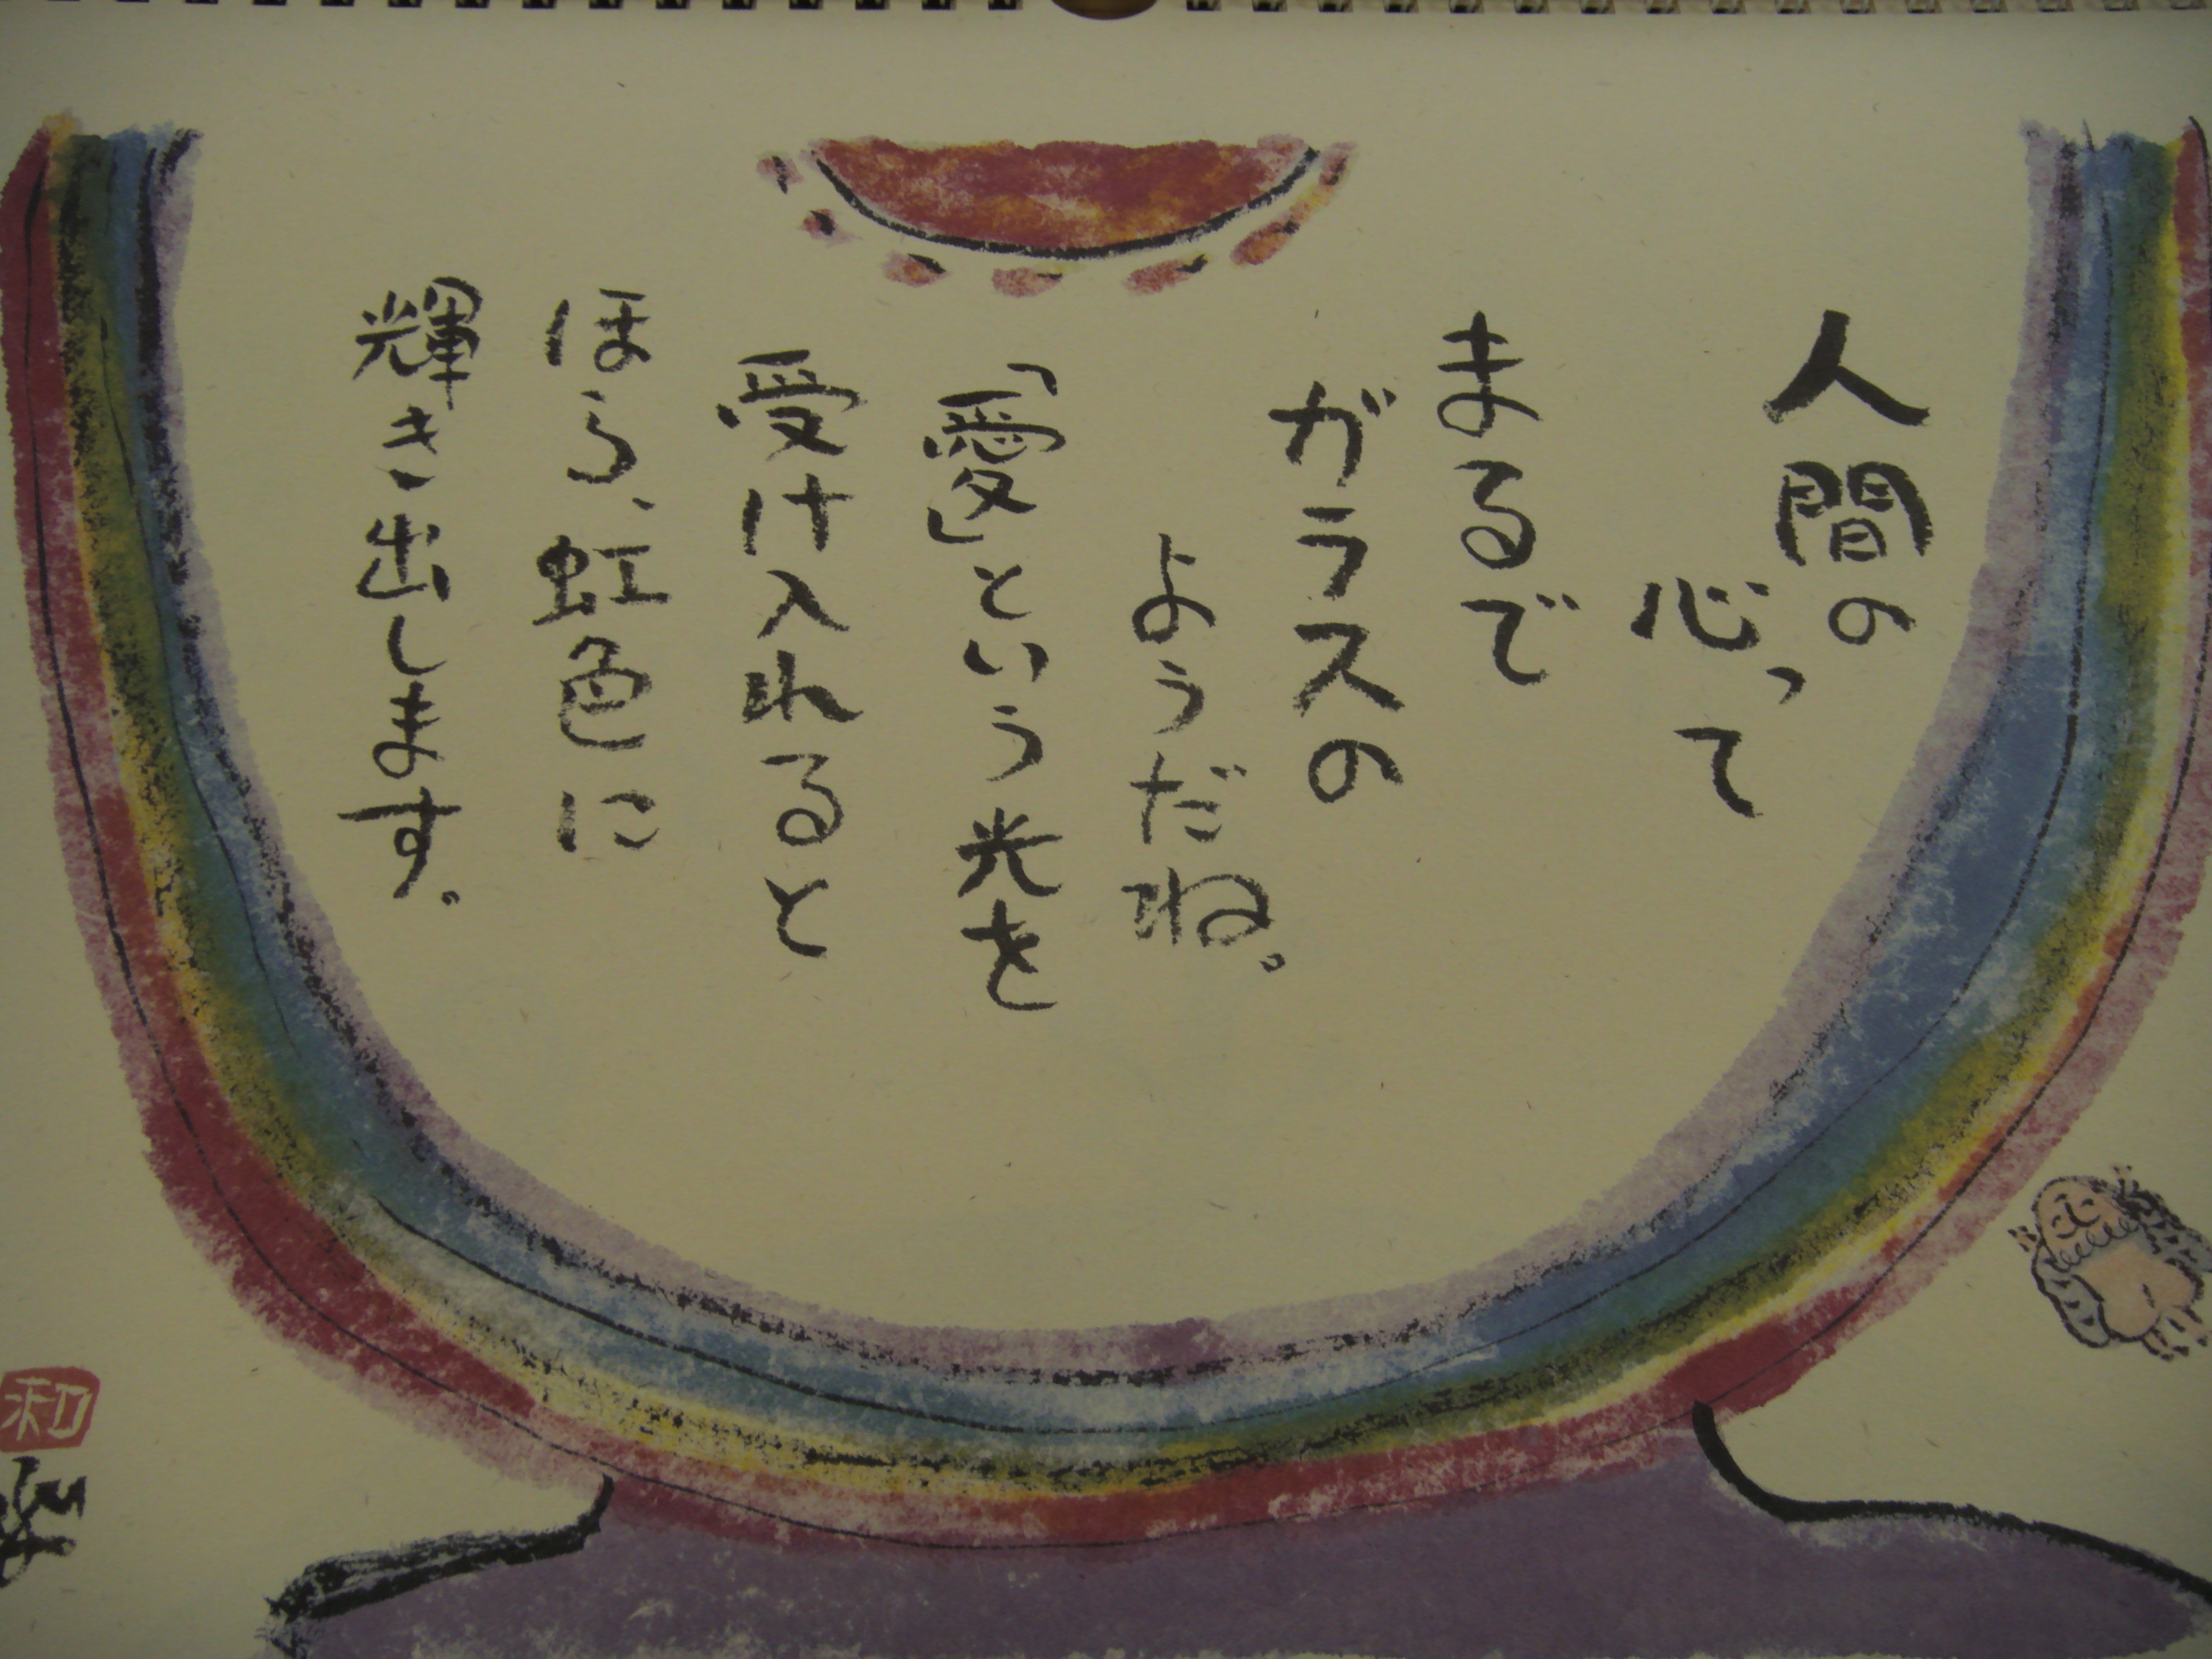 人間の
心って
まるで
ガラスの
ようだね。
「愛」という光を
受け入れると
ほら、虹色に
輝き出します。
和